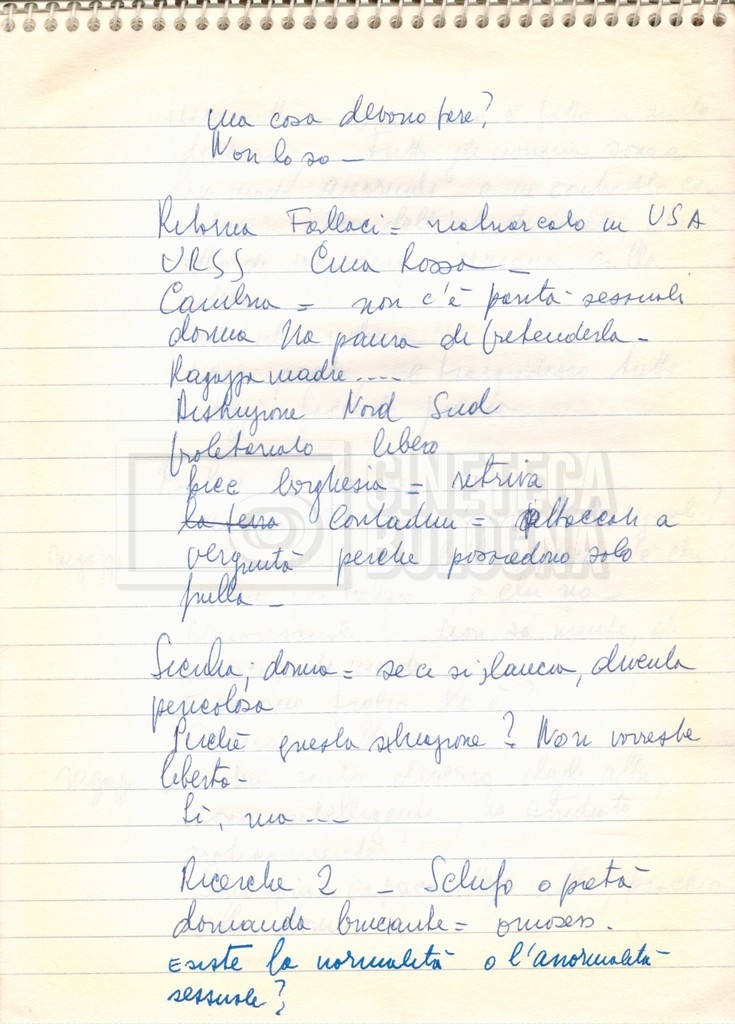 ma cosa devono fare?
Non lo so –
Ritorna Fallaci = matriarcato in USA
URSS Cina Rossa –
Camilla = non c'è parità sessuali
donna ha paura di pretenderla –
Ragazza madre ....
Distinzione Nord Sud
proletariato libero
picc borghesia = retriva
la terra contadini = attaccati a
verginità perché possiedono solo
quella –
Sicilia; donna = se ci si slancia, diventa
pericolosa
Perché questa situazione? Non vorreste
libertà –
Sì, ma ---
Ricerche 2 – Schifo o pietà
domanda bruciante = omosess.
Esiste la normalità o l'anormalità
sessuale?
CINETECA
BOLOGNA